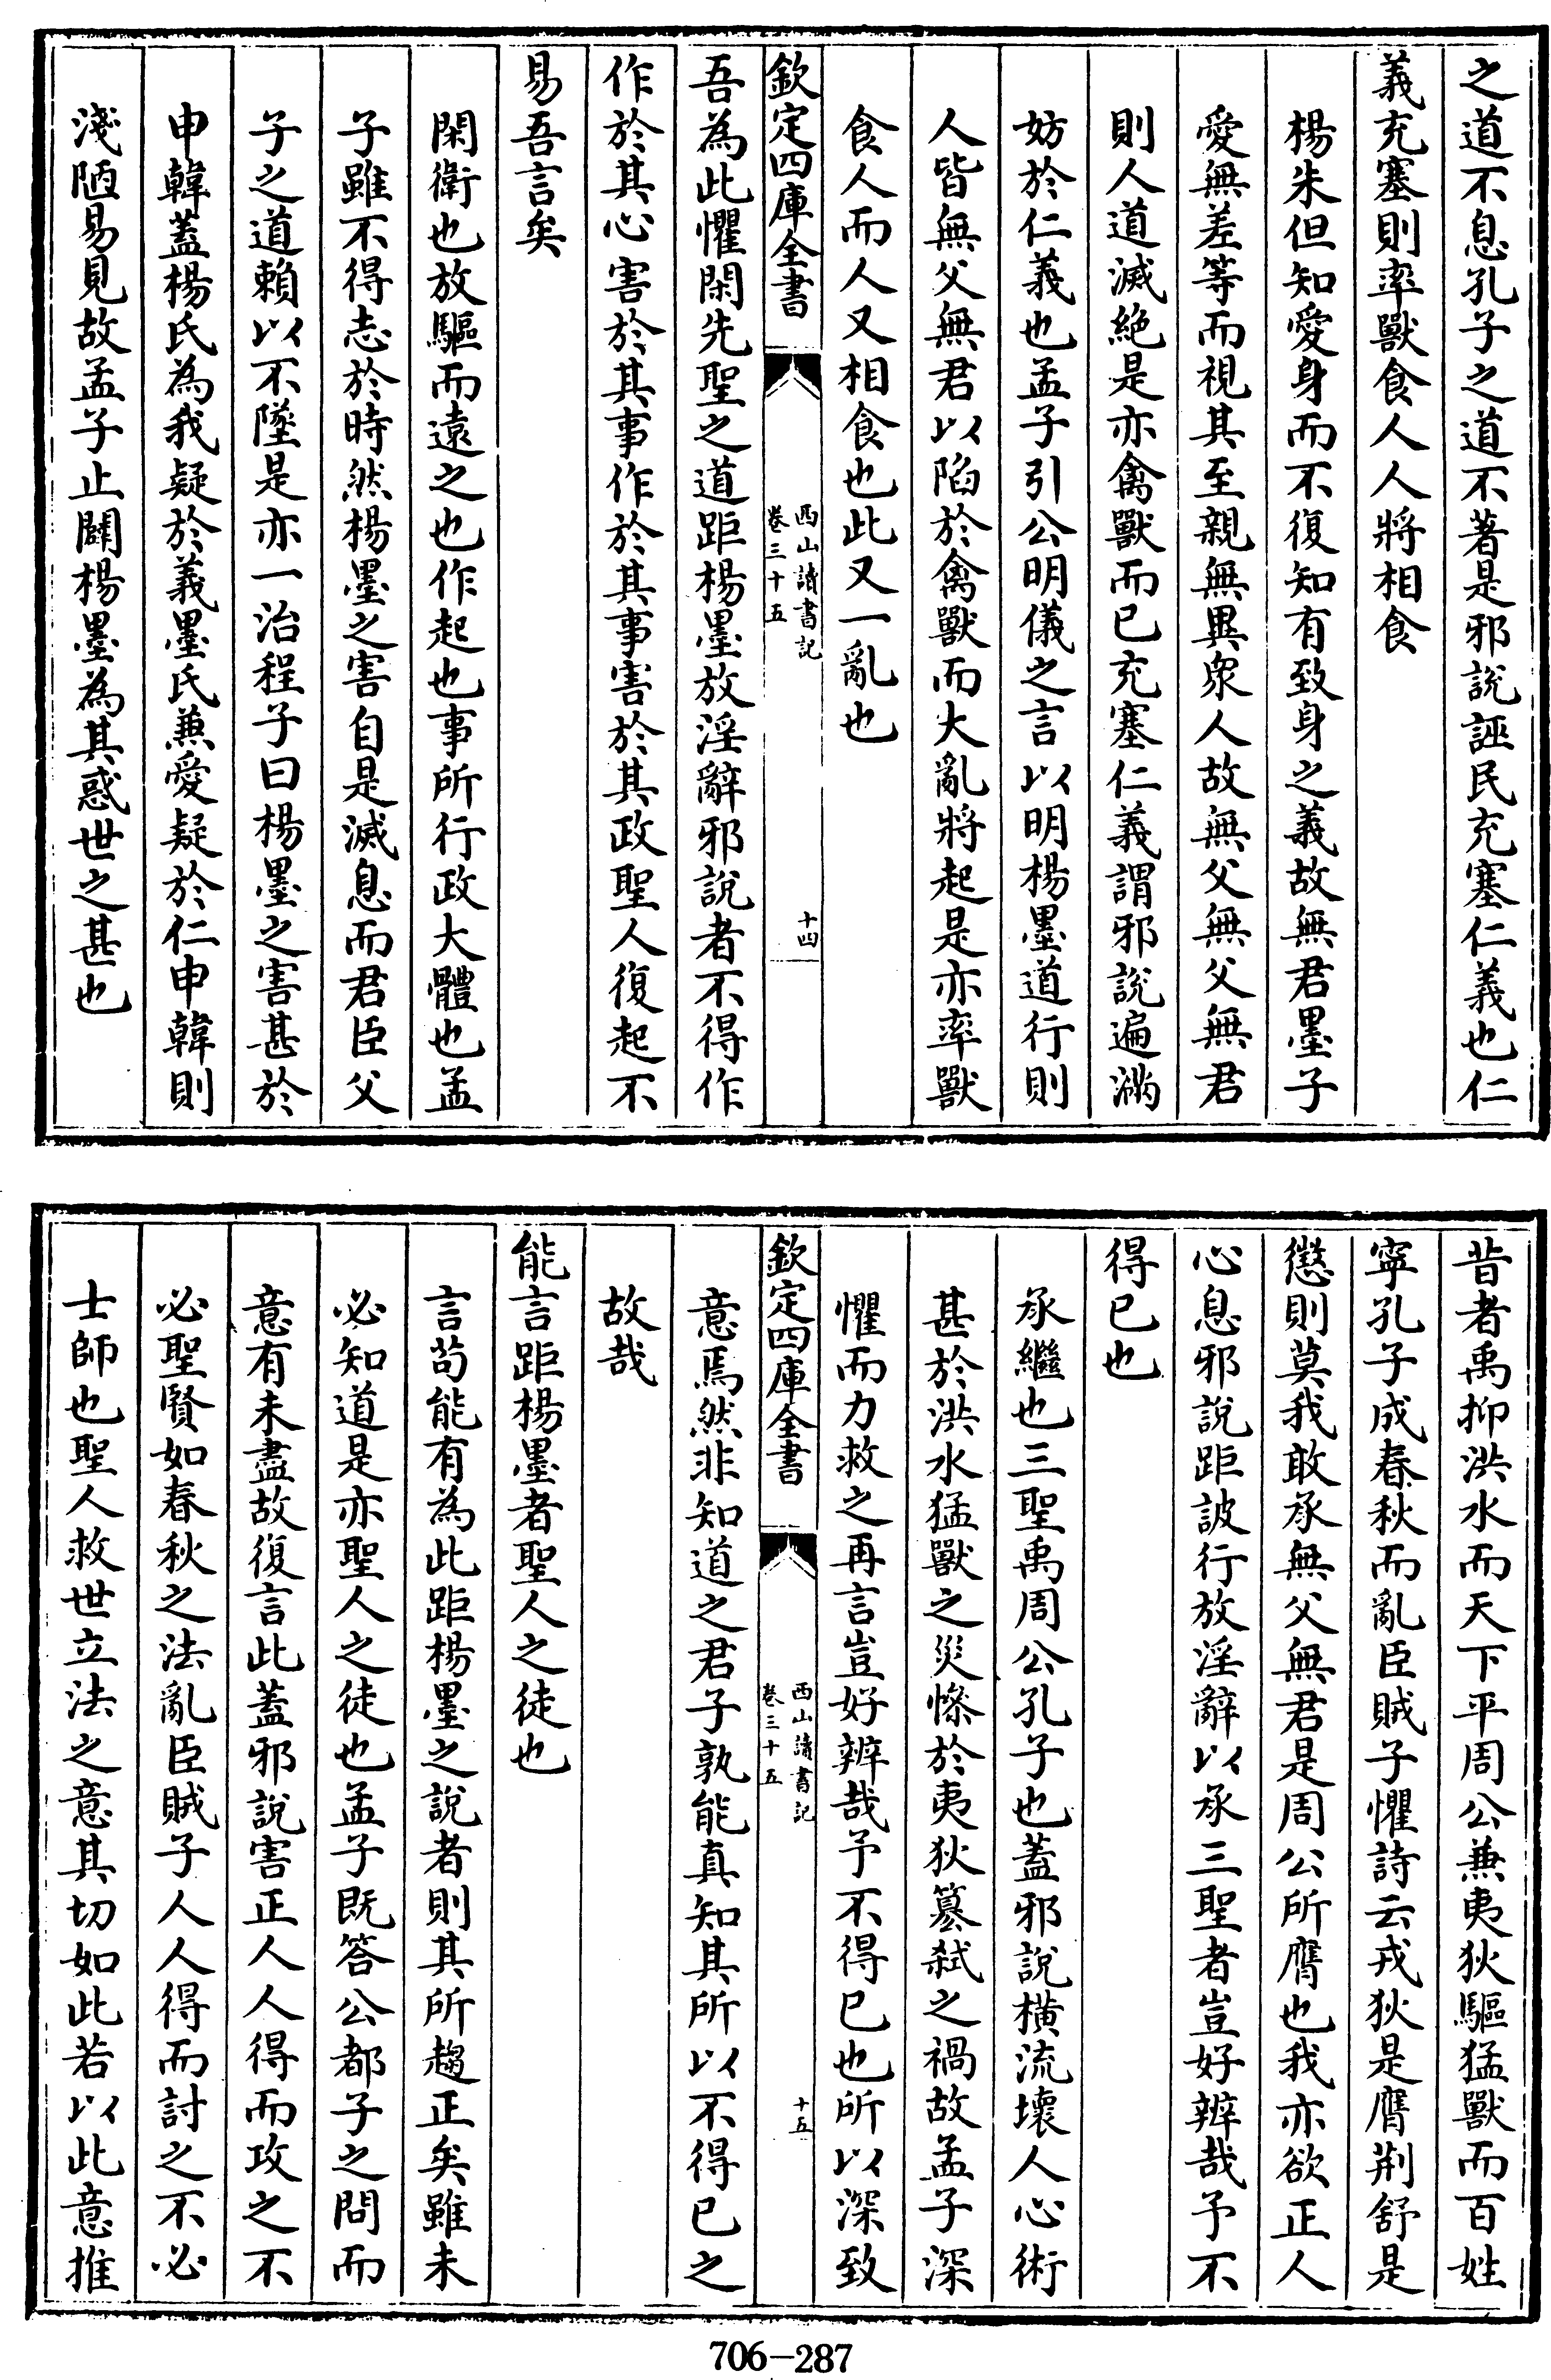 之道不息孔子之道不著是邪說誣民充塞仁義也仁
義充塞則率獸食人人將相食
楊朱但知愛身而不復知有致身之義故無君墨子
愛無差等而視其至親無異衆人故無父無父無君
則人道滅絶是亦禽獸而已充塞仁義謂邪說遍滿
妨於仁義也孟子引公明儀之言以明楊墨道行則
人皆無父無君以陷於禽獸而大亂將起是亦率獸
食人而人又相食也此又一亂也
欽定四庫全書
西山讀書記
卷三十五
十四
吾為此懼閑先聖之道距楊墨放淫辭邪說者不得作
作於其心害於其事作於其事害於其政聖人復起不
易吾言矣
閑衛也放驅而遠之也作起也事所行政大體也孟
子雖不得志於時然楊墨之害自是滅息而君臣父
子之道賴以不墜是亦一治程子曰楊墨之害甚於
申韓蓋楊氏為我疑於義墨氏兼愛疑於仁申韓則
淺陋易見故孟子止闢楊墨為其惑世之甚也
昔者禹抑洪水而天下平周公兼夷狄驅猛獸而百姓
寧孔子成春秋而亂臣賊子懼詩云戎狄是膺荆舒是
懲則莫我敢承無父無君是周公所膺也我亦欲正人
心息邪說距詖行放淫辭以承三聖者豈好辨哉予不
得已也
承繼也三聖禹周公孔子也蓋邪說橫流壞人心術
甚於洪水猛獸之災慘於夷狄簒弑之禍故孟子深
懼而力救之再言豈好辨哉予不得已也所以深致
欽定四庫全書
西山讀書記
卷三十五
十五
意焉然非知道之君子孰能真知其所以不得已之
故哉
能言距楊墨者聖人之徒也
言苟能有為此距楊墨之說者則其所趨正矣雖未
必知道是亦聖人之徒也孟子既答公都子之問而
意有未盡故復言此蓋邪說害正人人得而攻之不
必聖賢如春秋之法亂臣賊子人人得而討之不必
士師也聖人救世立法之意其切如此若以此意推
706-287